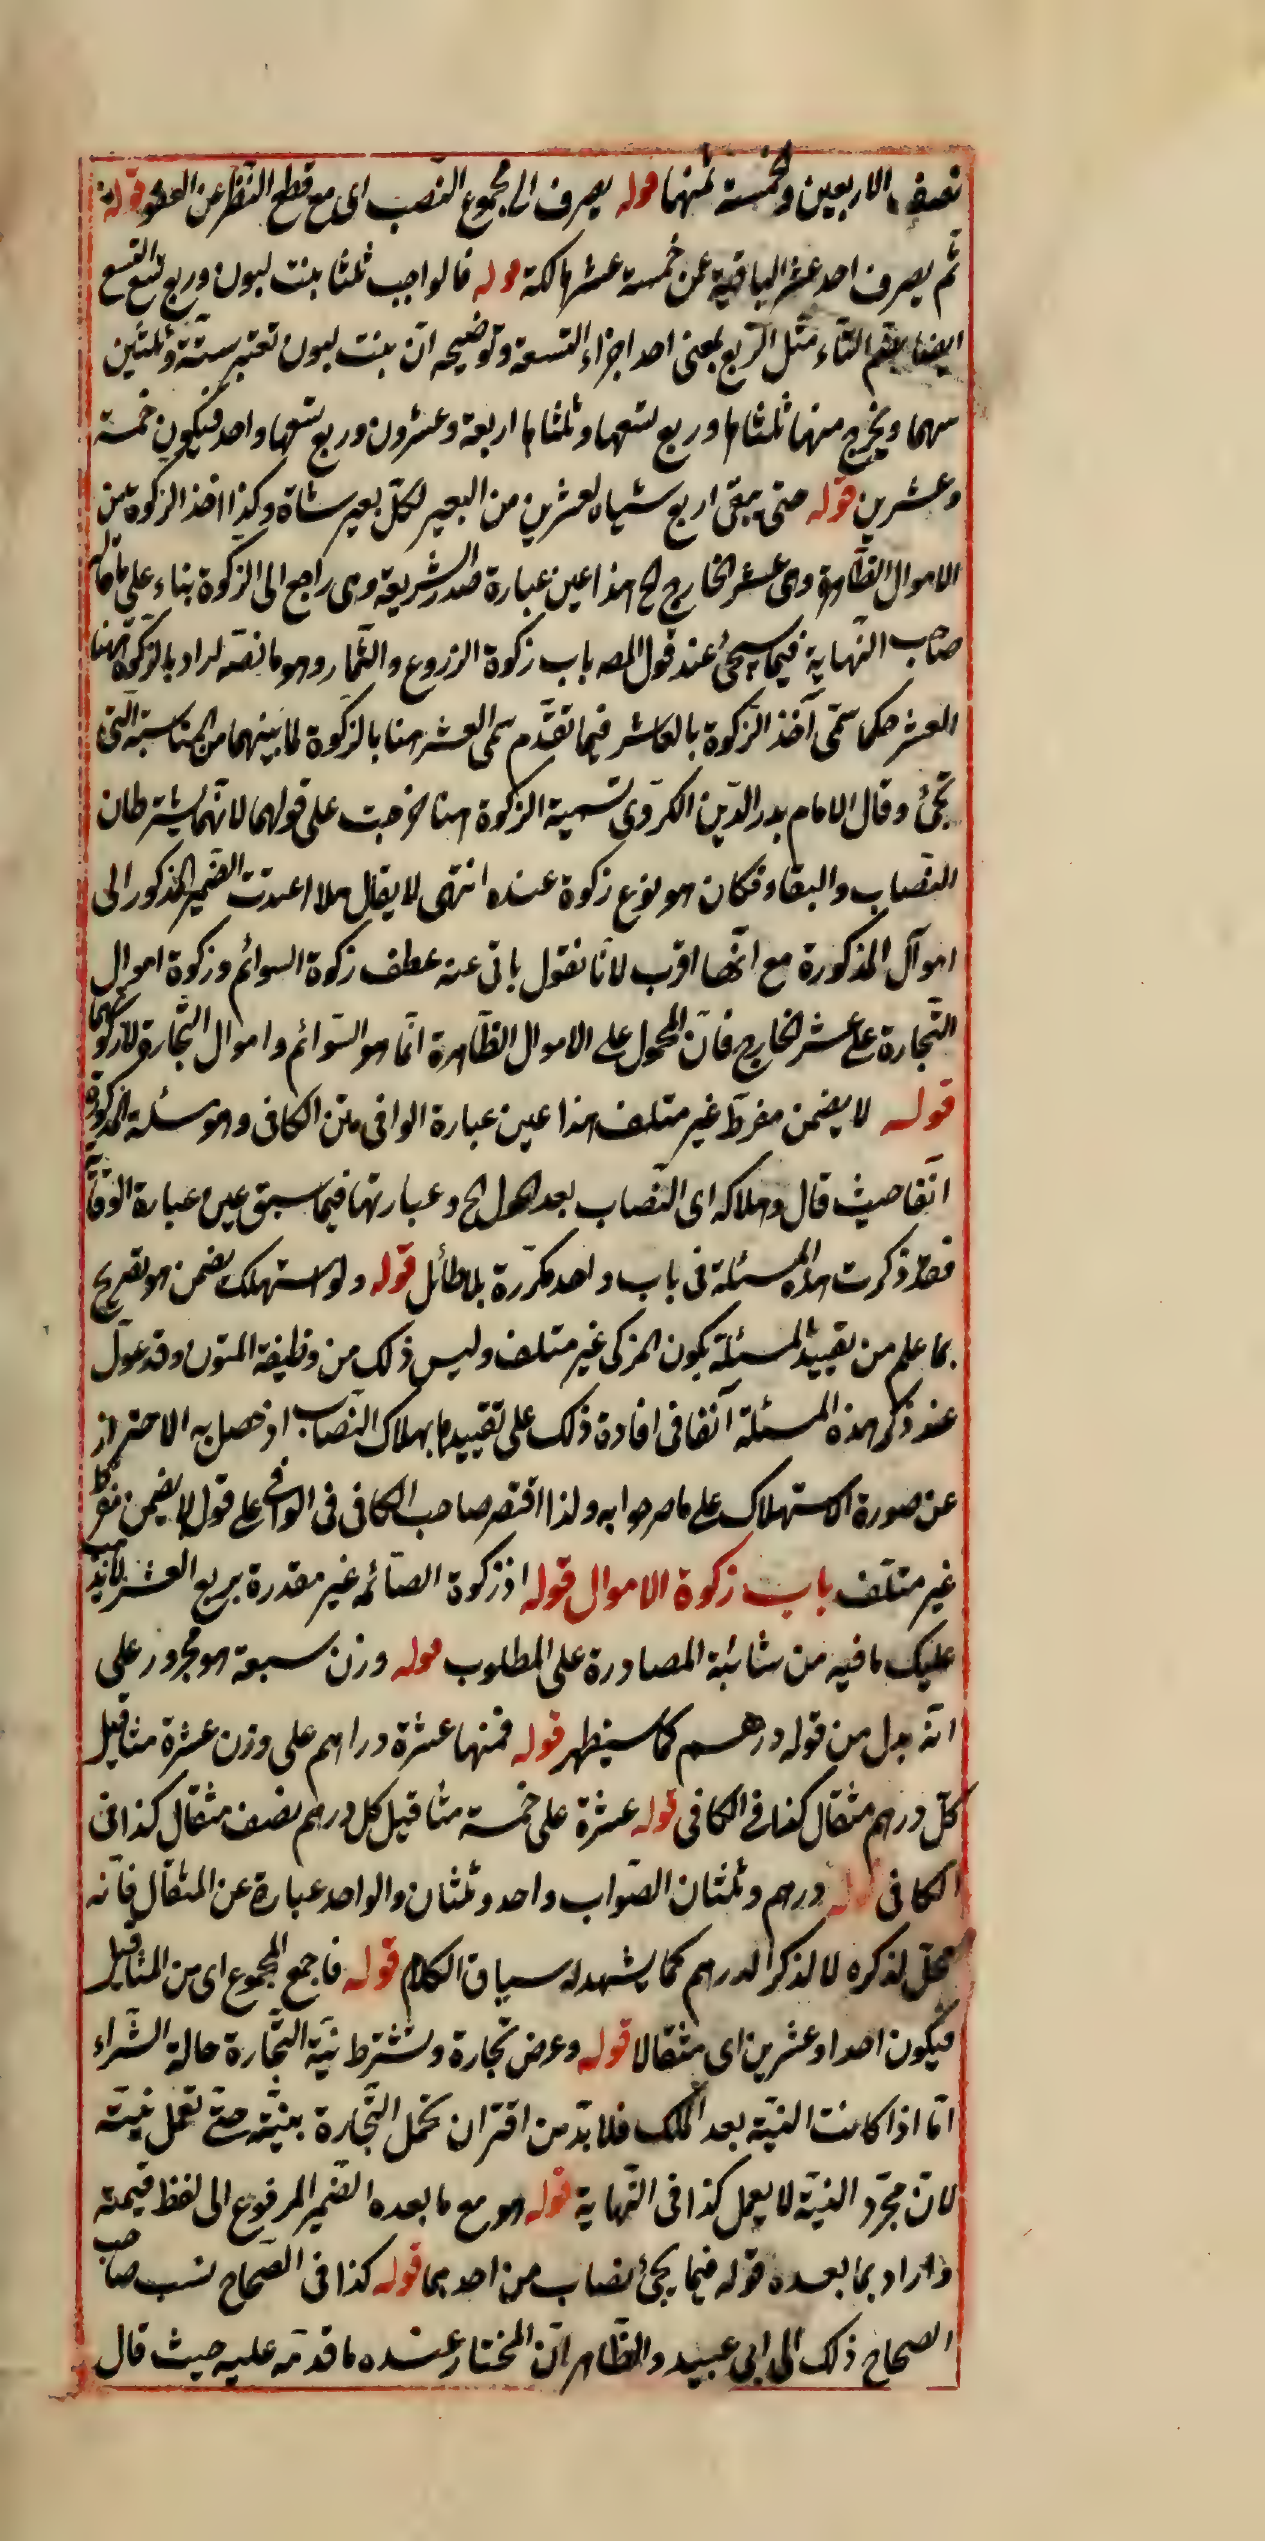 نصف الاربعين وخمسة ثمنها قوله يصرف الى مجموع النصب اى مع قطع النظر عن العفو قوله
ثم يصرف احد عشر الباقية عن خمسة عشر هالكة قوله فالواجب ثلثا بنت لبون وربع تسع التسع
ايضا بضم التاء مثل الربع بمعنى احد اجزاء التسعة وتوضيحه ان بنت لبون تعتبر ستة وثلثين
سهما ويخرج منها ثلثاها وربع تسعها وثلثاها اربعة وعشرون وربع تسعها واحد فيكون خمسة
وعشرين قوله حتى يبقى اربع شياه لعشرين من البعير لكل بعير شاة وكذا اخذ الزكوة من
الاموال الظاهرة وهى عشر الخارج الخ هذا عين عبارة صدر الشريعة وهى راجع الى الزكوة بناء على ما قاله
صاحب النهاية فيما سيجئ عند قول المصـ باب زكوة الزروع والثمار وهو ما نصه اراد بالزكوة ههنا
العشر حكما سمى آخذ الزكوة بالعاشر فيما تقدم سمى العشر هنا بالزكوة لما بينهما من المناسبة التى
تجئ وقال الامام بدر الدين الكردى تسمية الزكوة هنا خرجت على قولهما لانهما يشترطان
النصاب والبقاء فكان هو نوع زكوة عنده انتهى لا يقال هلا اعدت الضمير المذكور الى
اموال المذكورة مع انها اقرب لانا نقول يابى عنه عطف زكوة السوائم وزكوة اموال
التجارة على عشر الخارج فان المحمول على الاموال الظاهرة انما هو السوائم واموال التجارة لا زكوتهما
قوله لا يضمن مفرط غير متلف هذا عين عبارة الوافى متن الكافى وهو مسئلة المذكورة
آنفا حيث قال وهلاكه اى النصاب بعد الحول الخ وعبارتها فيما سبق عين عبارة الوقاية
فقد ذكرت هذه المسئلة فى باب واحد مكررة بلا طائل قوله ولو استهلك يضمن هو تصريح
بما علم من تقييد المسئلة بكون المزكى غير متلف وليس ذلك من وظيفة المتون وقد عول
عند ذكر هذه المسئلة آنفا فى افادة ذلك على تقييدها بهلاك النصاب اذ حصل به الاحتراز
عن صورة الاستهلاك على ما صرحوا به ولذا اقتصر صاحب الكافى فى الوافى على قول لا يضمن مفرط
غير متلف باب زكوة الاموال قوله اذ زكوة السائمة غير مقدرة بربع العشر لا يذهب
عليك ما فيه من شائبة المصادرة على المطلوب قوله وزن سبعة هو مجرور على
انه بدل من قوله درهم كما سيظهر قوله فمنها عشرة دراهم على وزن عشرة مثاقيل
كل درهم مثقال كذا فى الكافى قوله عشرة على خمسة مثاقيل كل درهم نصف مثقال كذا فى
الكافى قوله درهم وثلثان الصواب واحد وثلثان والواحد عبارة عن المثقال فانه
محل لذكره لا لذكر الدرهم كما يشهد له سياق الكلام قوله فاجمع المجموع اى من المثاقيل
فيكون احدا وعشرين اى مثقالا قوله وعرض تجارة وتشترط نية التجارة حالة الشراء
اما اذا كانت النية بعد الملك فلا بد من اقتران عمل التجارة بنيته حتى تعمل نيته
لان مجرد النية لا يعمل كذا فى النهاية قوله هو مع ما بعده الضمير المرفوع الى لفظ قيمته
واراد بما بعده قوله فيما يجئ نصاب من احدهما قوله كذا فى الصحاح نسب صاحب
الصحاح ذلك الى ابى عبيد والظاهر ان المختار عنده ما قدمه عليه حيث قال